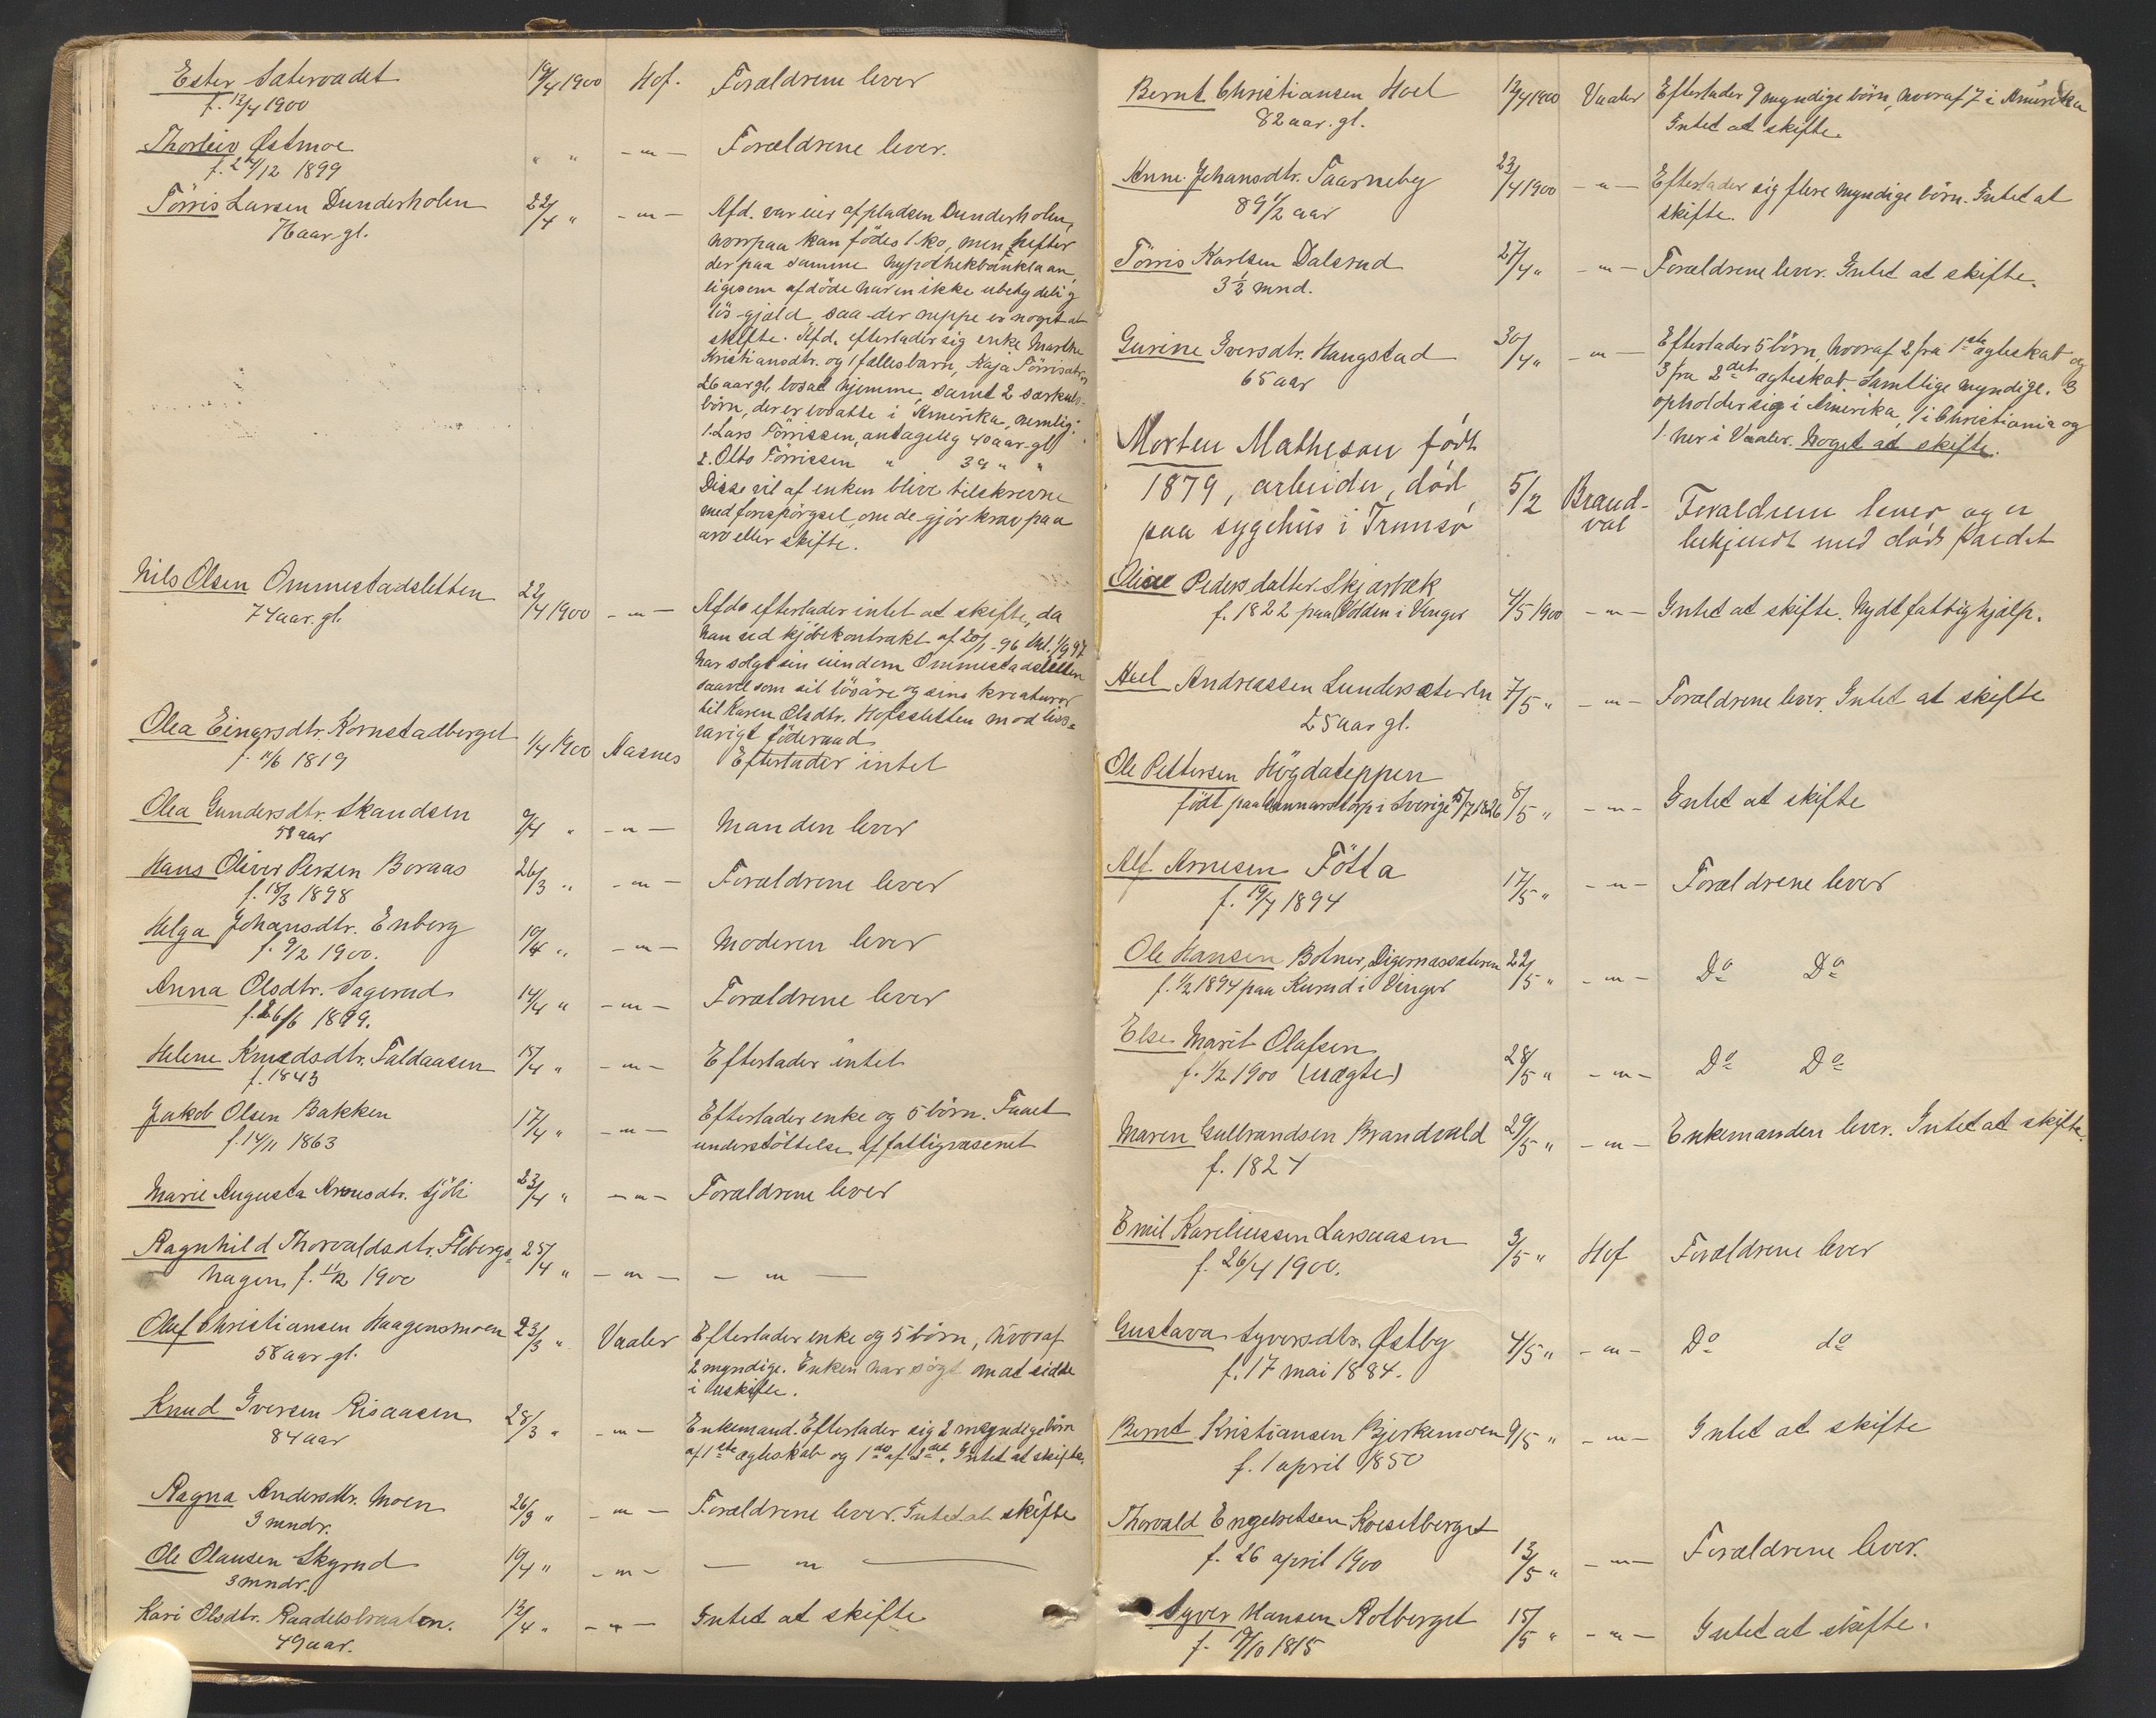 EsterÆtervadet 19/4 1900 Hof. Forældrene lever
f. 12/4 1900
Thorleiv Østmoe " " -"- Forældrene lever.
f. 24/12 1899
Törris Larsen Dunderholen 22/4 " -"- Afd. var eier af pladsen Dunderholen,
76 aar gl. hvorpaa kan födes 1 ko, men hefter
der paa samme hypothekbanklaan,
ligesom afdöde har en ikke ubetydelig
lös gjæld, saa der neppe er noget at
skifte. Afd. efterlader sig enke Marthe
Kristiansdtr. og 1 fællesbarn, Kaja Törrisdtr.,
26 aar gl. bosat hjemme, samt 2 særkuls-
börn, der er bosatte i Amerika, nemlig:
1. Lars Törrissen, antagelig 40 aar gl.
2. Otto Törrissen " 39 " "
Disse vil af enken blive tilskrevne
med forespörgsel, om de gjör krav paa
arv eller skifte.
Nils Olsen Ommestadsletten 22/4 1900 -"- Afdö efterlader intet at skifte, da
74 aar. gl. han ved kjöbekontrakt af 20/1-96 thl. 1/9 97
har solgt sin eiendom Ommestadsletten
saavel som sit lösöre og sine kreaturer
til Karen Olsdtr. Hofssletten mod livs-
varigt föderaad
Olea Einarsdtr. Kornstadberget 1/4 1900 Aasnes Efterlader intet
f. 11/6 1819
Olea Gundersdtr. Skandsen 9/4 " -"- Manden lever
58 aar
Hans Oliver Persen Boraas 26/3 " -"- Forældrene lever
f. 18/3 1898
Helga Johansdtr. Enberg 10/4 " -"- Moderen lever
f. 9/2 1900.
Anna Olsdtr. Sagerud 14/4 " -"- Forældrene lever
f. 26/6 1899.
Helene Knudsdtr. Faldaasen 15/4 " -"- Efterlader intet
f. 1843
Jakob Olsen Bakken 17/4 " -"- Efterlader enke og 5 börn. Faaet
f. 14/11 1863 understöttelse af fattigvæsenet
Marie Augusta Arnesdtr. Sjöli 23/4 " -"- Forældrene lever
Ragnhild Thorvaldsdtr. Flobergs- 25/4 " -"- -"-
hagen f. 11/2 1900
Oluf Christiansen Haagensmoen 23/3 " Vaaler Efterlader enke og 5 börn, hvoraf
58 aar gl. 2 myndige. Enken har sögt om at sidde
i uskifte.
Knud Iversen Risaasen 28/3 " -"- Enkemand. Efterlader sig 2 myndige börn
84 aar af 1ste ægteskab og 1 do af 2det. Intet at skifte.
Ragna Andersdtr. Moen 26/3 " -"- Forældrene lever. Intet at skifte
9 mndr.
Ole Olausen Skyrud 10/4 " -"- -"-
3 mndr.
Kari Olsdtr. Raadelsbraaten. 12/4 " -"- Intet at skifte
49 aar.
Bernt Christiansen Hoel 12/4 1900 Vaaler Efterlader 9 myndige börn, hvoraf 7 i Amerika
82 aar. gl. Intet at skifte.
Anne Johansdtr. Taarneby 23/4 1900 -"- Efterlader sig flere myndige börn. Intet at
89 1/2 aar skifte.
Törris Karlsen Dalsrud 27/4 " -"- Forældrene lever. Intet at skifte.
3 1/2 mnd.
Gurine Iversdtr. Haugstad 30/4 " -"- Efterlader 5 börn, hvoraf 2 fra 1ste ægteskab og
65 aar 3 fra 2det ægteskab. Samtlige myndige. 3
opholder sig i Amerika, 1 i Christiania og
1 her i Vaaler. Noget at skifte.
Morten Matheson födt
1879, arbeider, död 5/2 Brand- Forældrene lever og er
paa sygehus i Tromsö val bekjendt med döds faldet
Oliae Pedersdatter Skjærbæk 4/5 1900 -"- Intet at skifte. Nydt fattighjælp.
f. 1822 paa Volden i Vinger
Axel Andreassen Lundersæteren 7/5 " -"- Forældrene lever. Intet at skifte
25 aar gl.
Ole Pettersen Högdateppen 8/5 " -"- Intet at skifte
födt paa Gunnarstorp i Sverige 5/7 1826
Alf Arnesen Fötta 17/5 " -"- Forældrene lever
f. 19/7 1894
Ole Hansen Botner, Digernæssæteren 22/5 " -"- Do Do
f. 1/2 1894 paa Kurud i Vinger
Else Marit Olafsen 28/5 " -"- Do Do
f. 1/2 1900 (uægte)
Maren Gulbrandsen Brandvald 29/5 " -"- Enkemanden lever. Intet at skifte.
f. 1824
Emil Kareliussen Larsaasen 3/5 " Hof Forældrene lever
f. 26/4 1900.
Gustava Syversdtr. Østby 4/5 " -"- Do do
f. 17 mai 1884.
Bernt Kristiansen Bjerkemoen 9/5 " -"- Intet at skifte
f. 1 april 1850
Thorvald Engebretsen Kveselberget 13/5 " -"- Forældrene lever.
f. 26 april 1900
Syver Hansen Rotberget 15/5 " -"- Intet at skifte.
f. 19/10 1815